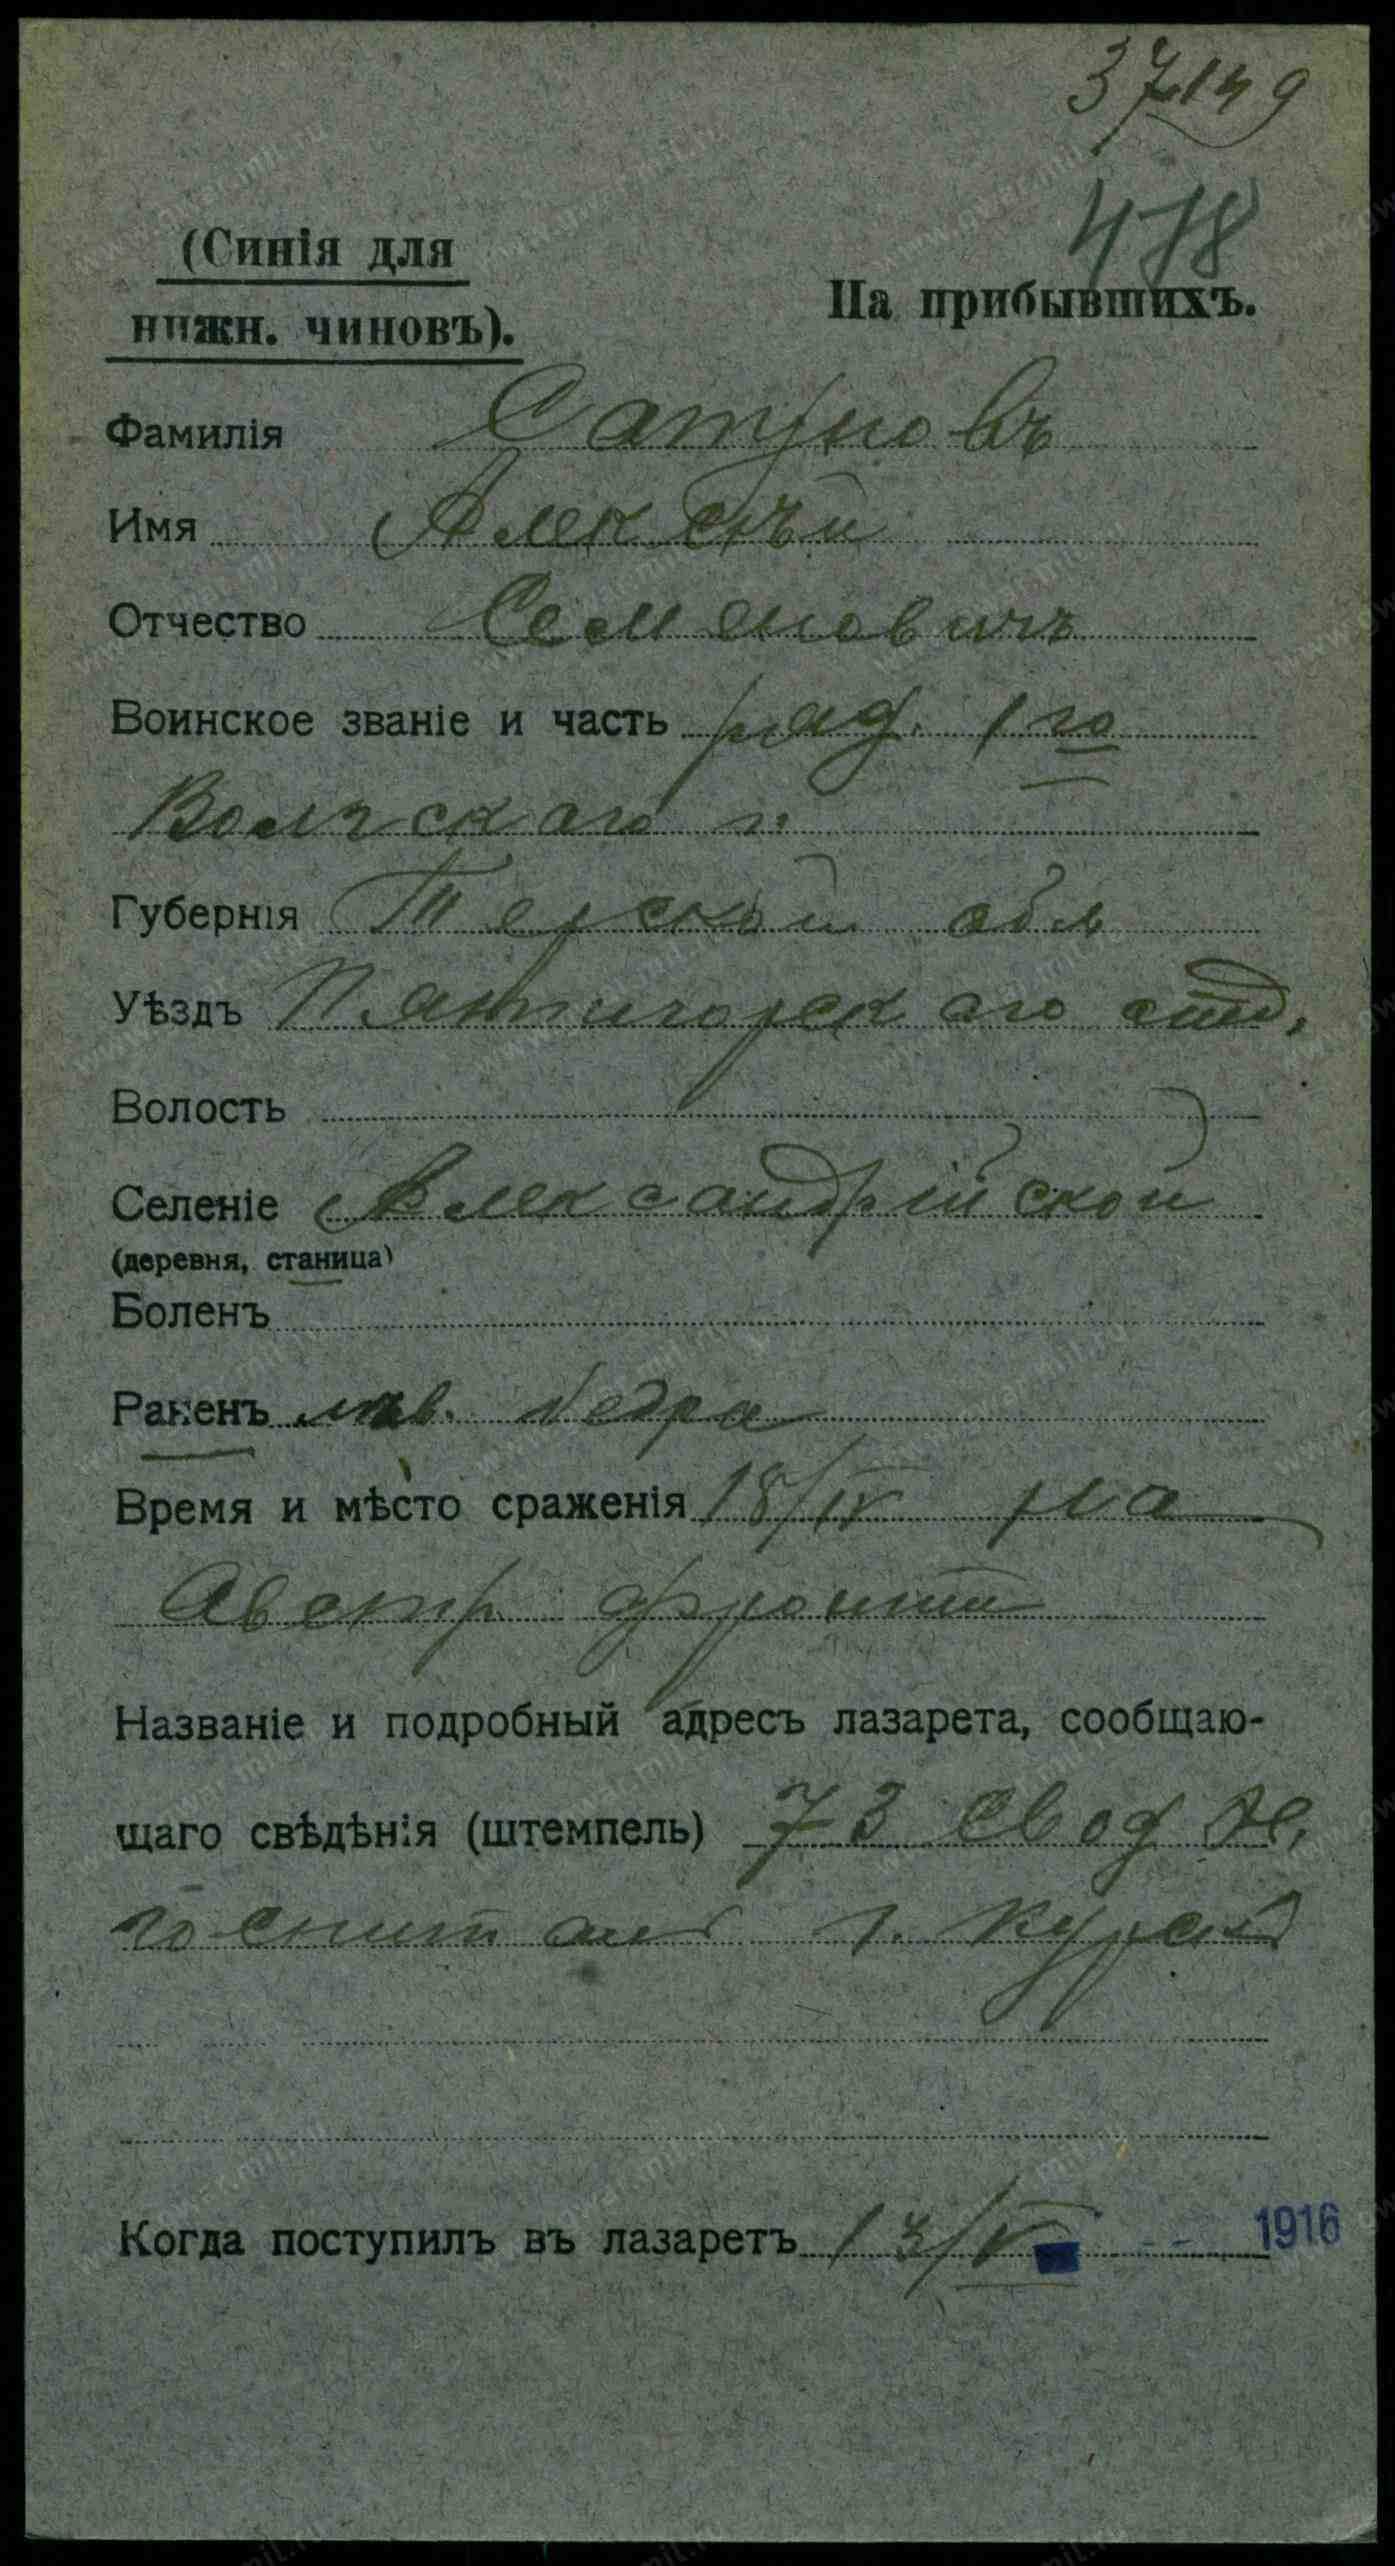 37149
478
(Синія для
нижн. чиновъ).
На прибывшихъ.
Фамилія Сатуновъ
Имя Алексѣй
Отчество Семеновичъ
Воинское званіе и часть ряд. 1го
Волгскаго п.
Губернія Терской обл
Уѣздъ Пятигорскаго отд.
Волость
Селеніе Александрійской
(деревня, станица)
Боленъ
Раненъ лѣв. бедра
Время и мѣсто сраженія 18/IV на
Австр фронтѣ
Названіе и подробный адресъ лазарета, сообщаю-
щаго свѣдѣнія (штемпель) 73 свод э.
госпиталь г. Курскъ
Когда поступилъ въ лазаретъ 13/V 1916